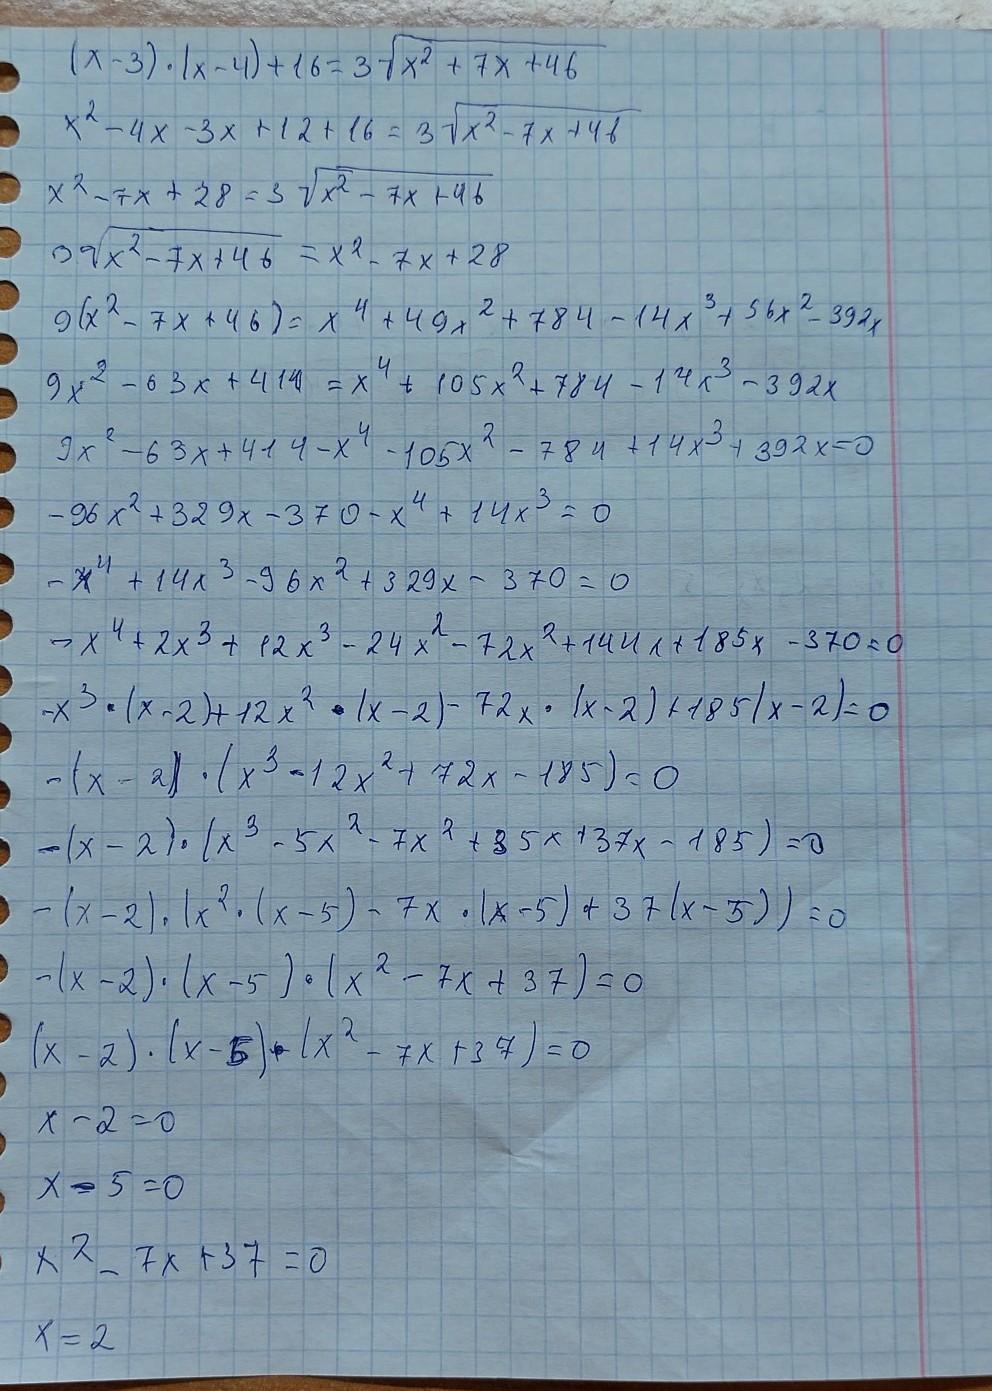 (x-3)·(x-4)+16=3√x²+7x+46
x²-4x-3x+12+16=3√x²-7x+46
x²-7x+28=3√x²-7x+46
3√x²-7x+46=x²-7x+28
9(x²-7x+46)=x⁴+49x²+784-14x³+56x²-392x
9x²-63x+414=x⁴+105x²+784-14x³-392x
9x²-63x+414-x⁴-105x²-784+14x³+392x=0
-96x²+329x-370-x⁴+14x³=0
-x⁴+14x³-96x²+329x-370=0
-x⁴+2x³+12x³-24x²-72x²+144x+185x-370=0
-x³·(x-2)+12x²·(x-2)-72x·(x-2)+185(x-2)=0
-(x-2)·(x³-12x²+72x-185)=0
-(x-2)·(x³-5x²-7x²+35x+37x-185)=0
-(x-2)·(x²·(x-5)-7x·(x-5)+37(x-5))=0
-(x-2)·(x-5)·(x²-7x+37)=0
(x-2)·(x-5)·(x²-7x+37)=0
x-2=0
x-5=0
x²-7x+37=0
x=2